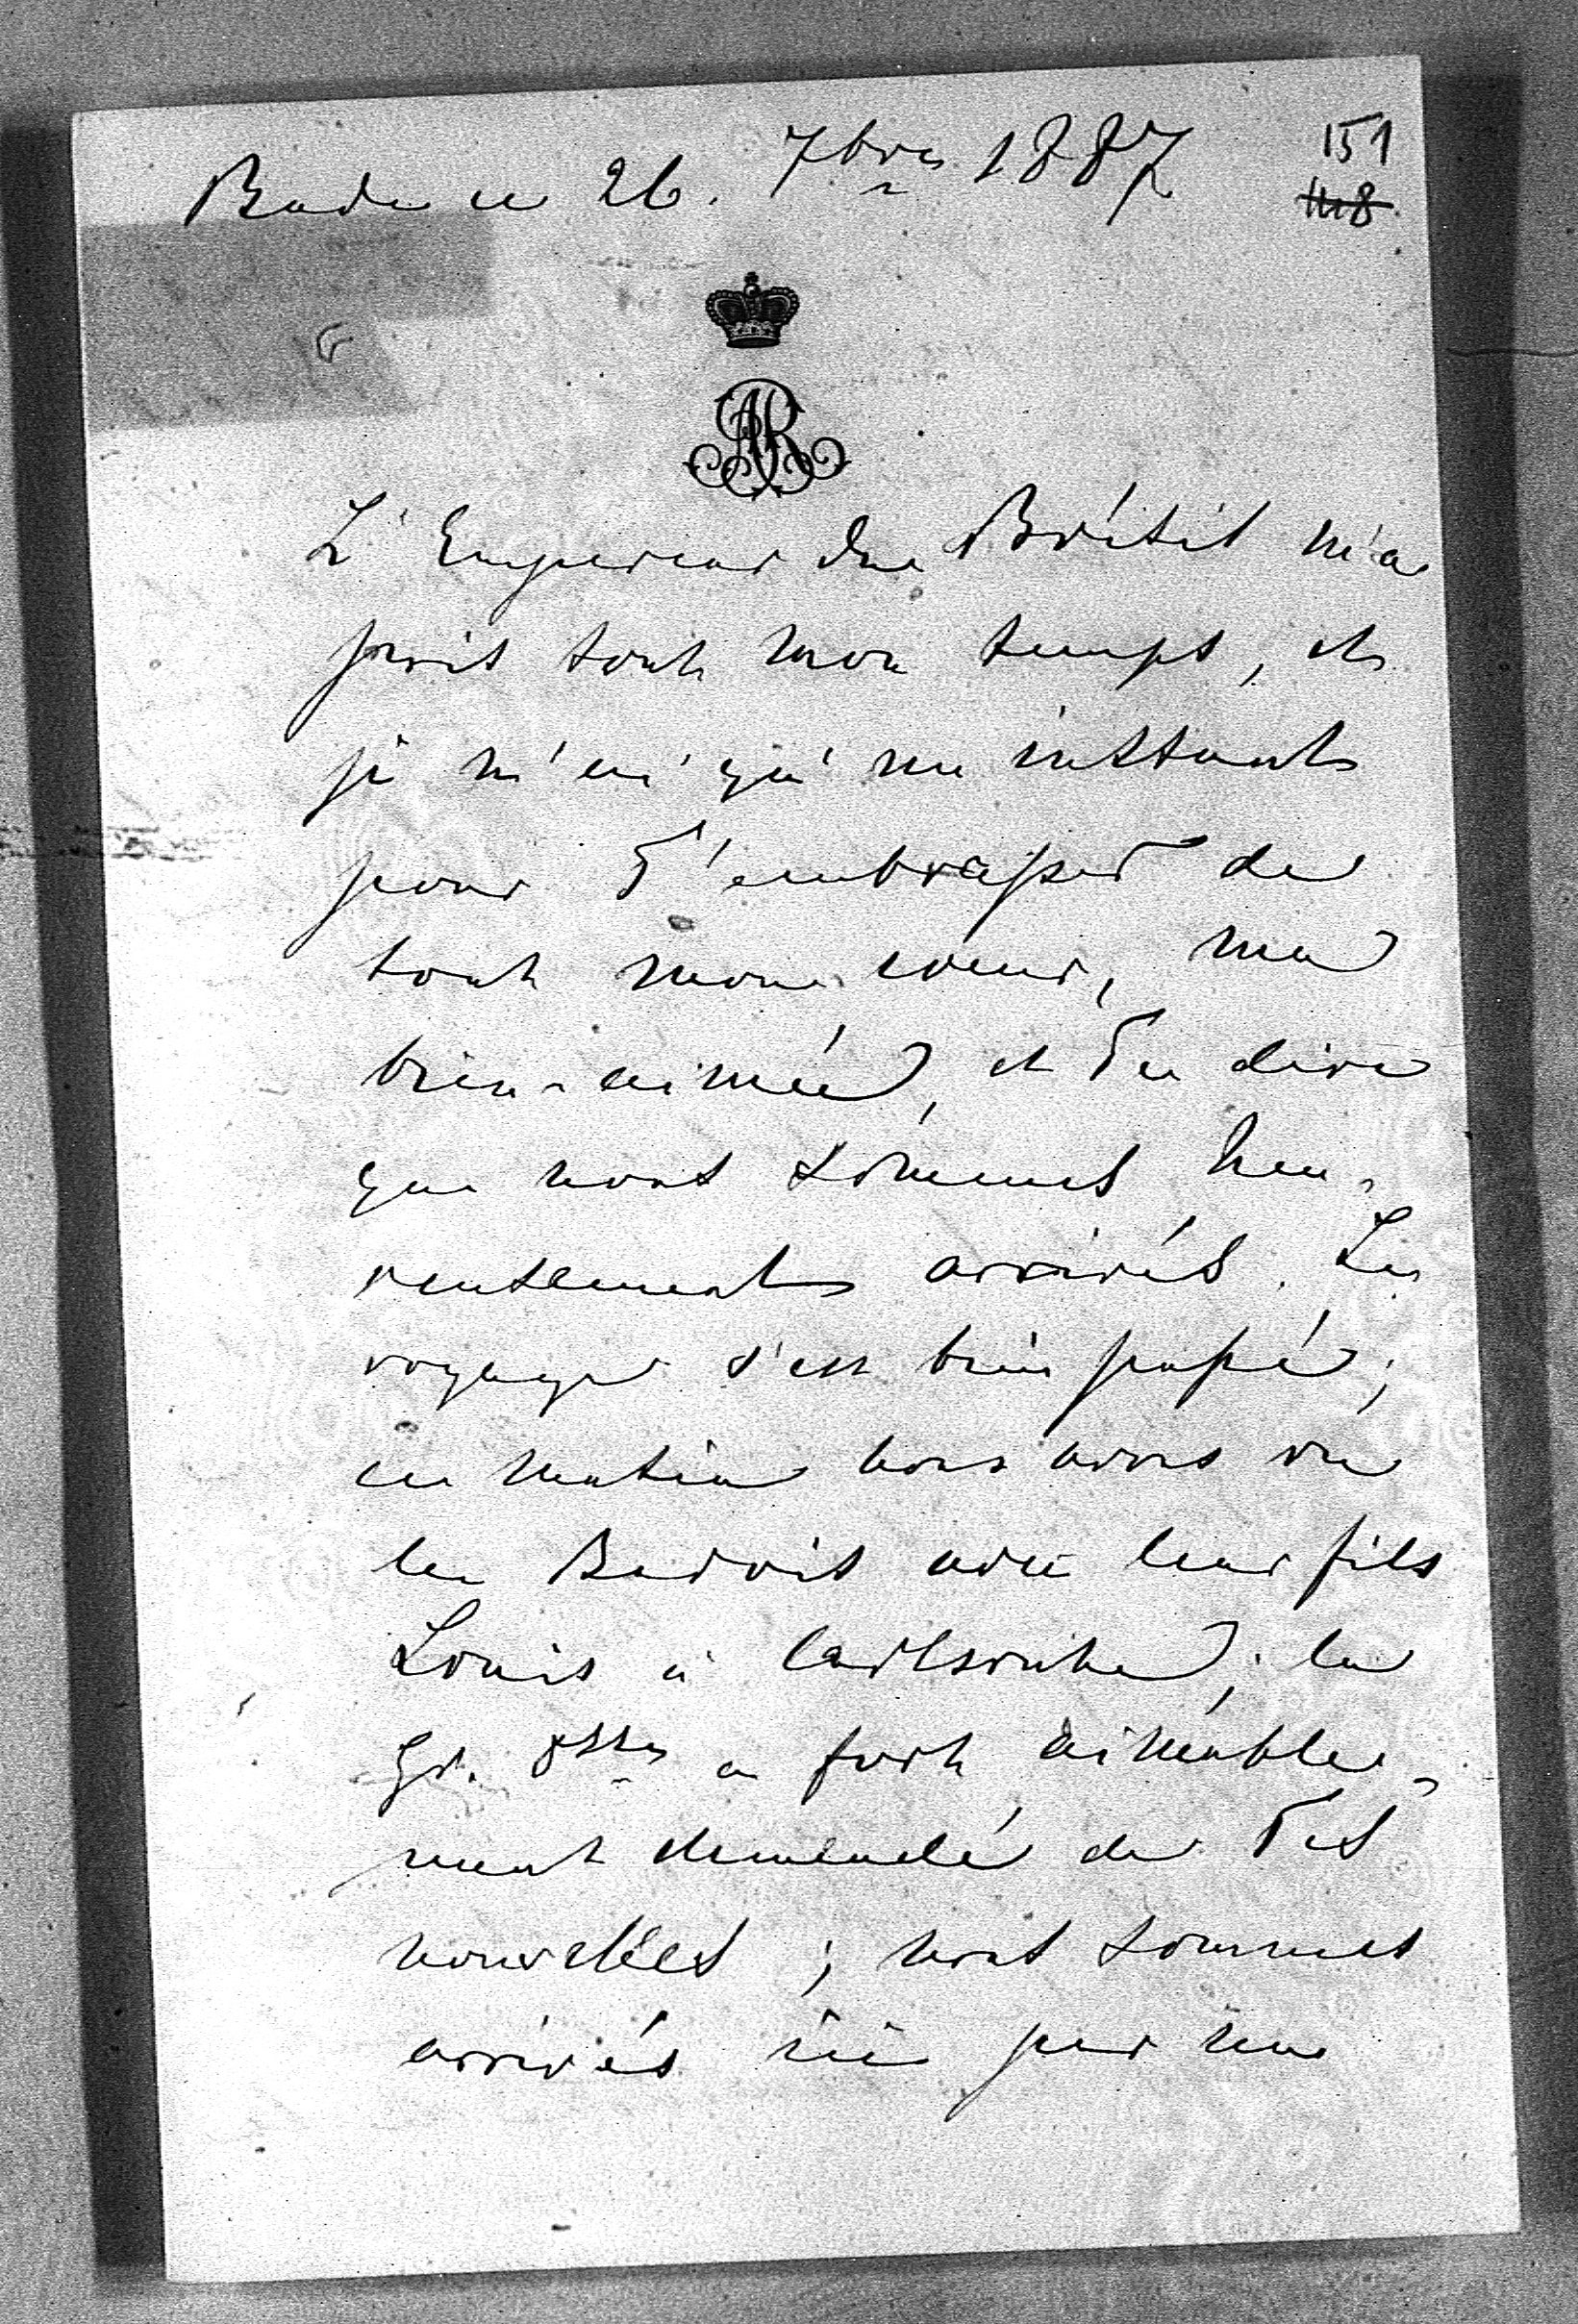 Bade ce 26. 7bre 1887
151
118
AR
L'Empereur du Brésil m'a
pris tout mon temps, et
je n'ai qu'un instant
pour T'embrasser de
tout mon coeur, ma
bien-aimée, et Te dire
que nous sommes heu-
reusement arrivés. Le
voyage s'est bien passé;
ce matin nous avons vu
les Badois avec leur fils
Louis à Carlsruhe; la
Gr. Dsse a fort aimable-
ment demandé de Tes
nouvelles; nous sommes
arrivés ici par une